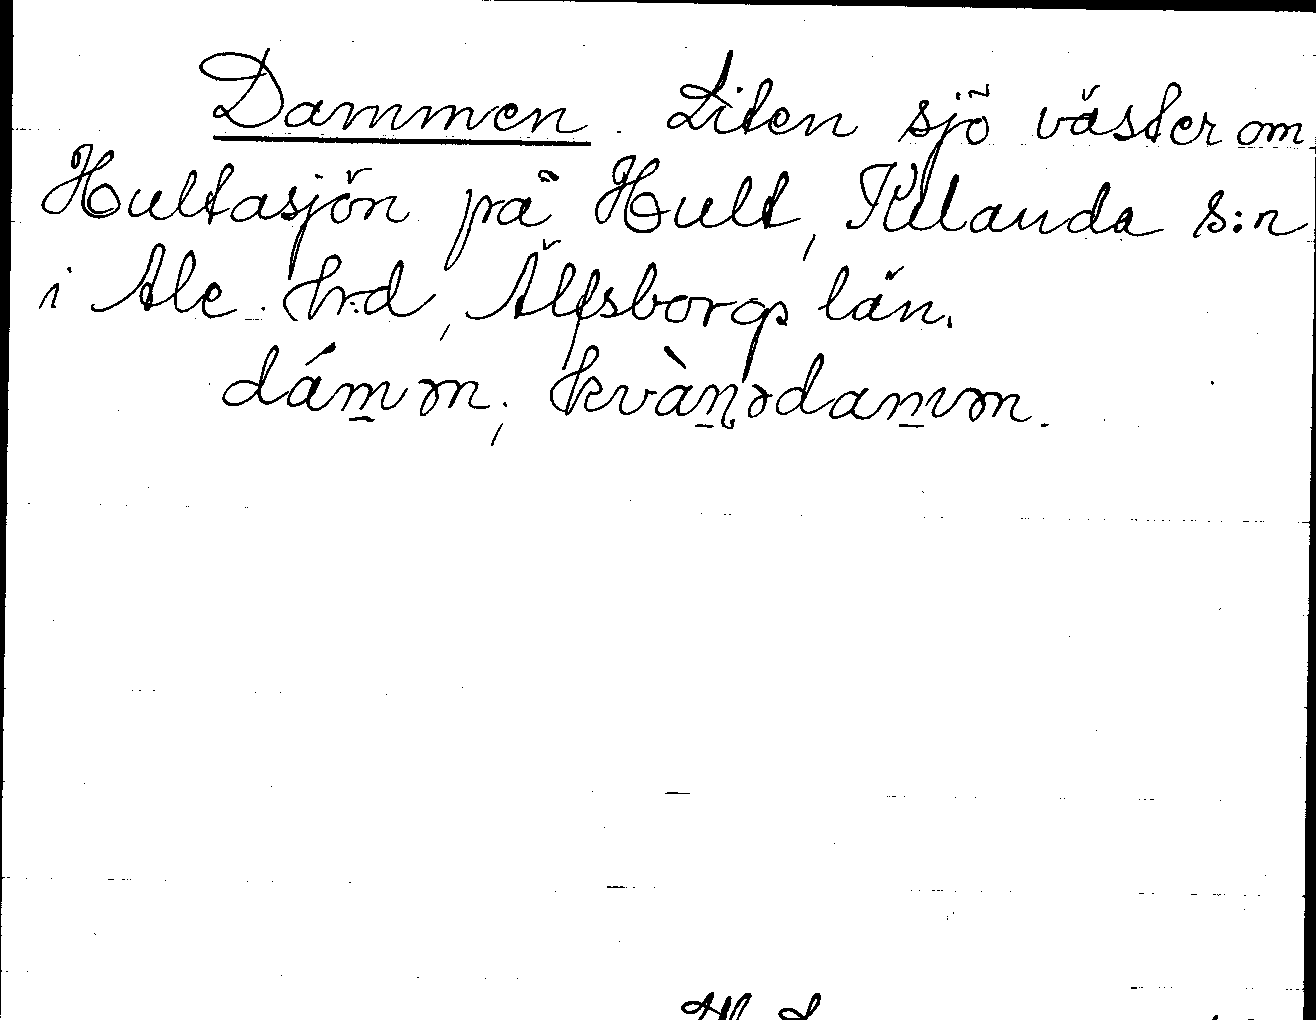 Dammen. Liten sjö väster om
Hultasjön på Hult, Kilanda s:n
i Ale hrd, Älfsborgs län.
dám̲ən; kvàn̲ədam̲ən.